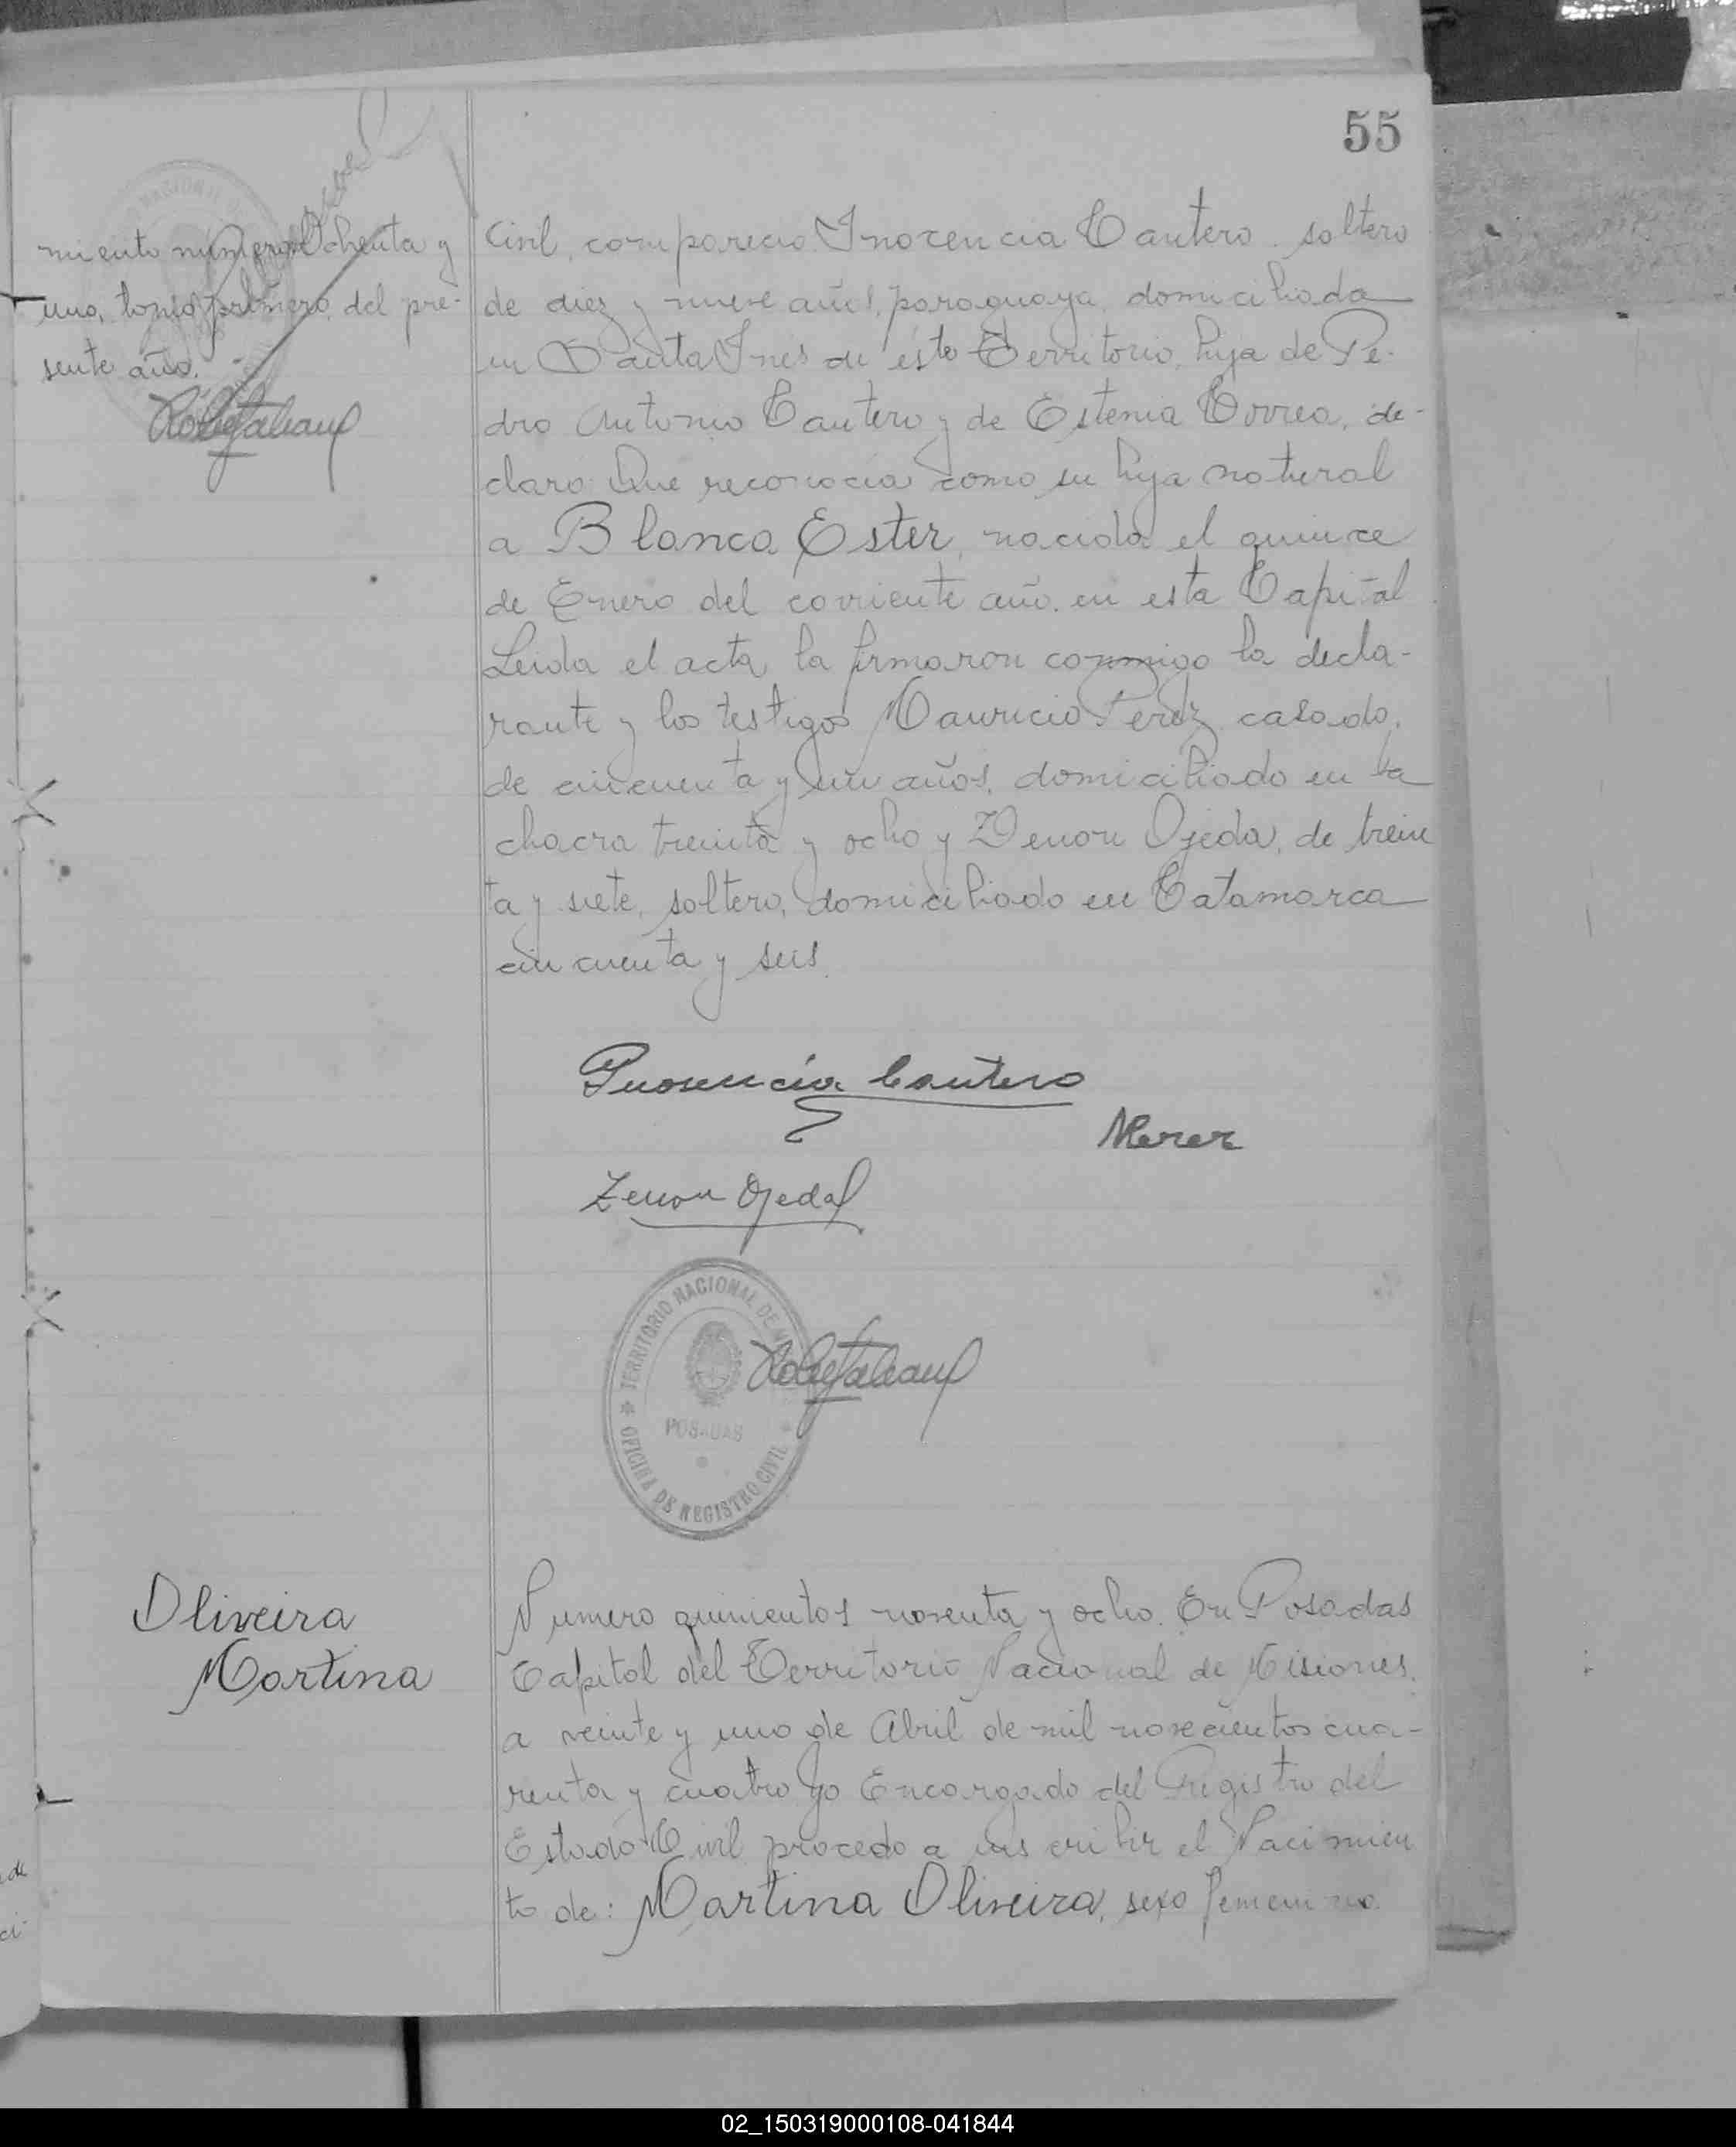 55
miento numero Ochenta y
uno, tomo primero, del pre-
sente año.
Civil, comparecio Inocencia Cantero soltero
de diez y nueve años, paraguaya domiciliada
en Santa Ines de este Territorio, hija de Pe-
dro Antonio Cantero y de Estenia Correa, de-
claro: Que reconocia como su hija natural
a Blanca Ester, nacida el quince
de Enero del corriente año en esta Capital
Leida el acta la firmaron conmigo la decla-
rante y los testigos Mauricio Perez casado,
de cincuenta y un años, domiciliado en la
chacra treinta y ocho y Zenon Ojeda, de trein
ta y siete, soltero, domiciliado en Catamarca
cincuenta y seis.
Inosencia Cantero
Zenon Ojeda
TERRITORIO NACIONAL DE
POSADAS
OFICINA DE REGISTRO CIVIL
Oliveira
Martina
Numero quinientos noventa y ocho. En Posadas
Capital del Territorio Nacional de Misiones,
a veinte y uno de Abril de mil novecientos cua-
renta y cuatro Yo Encargado del Registro del
Estado Civil procedo a inscribir el Nacimien
to de: Martina Oliveira, sexo femenino.
02_150319000108-041844